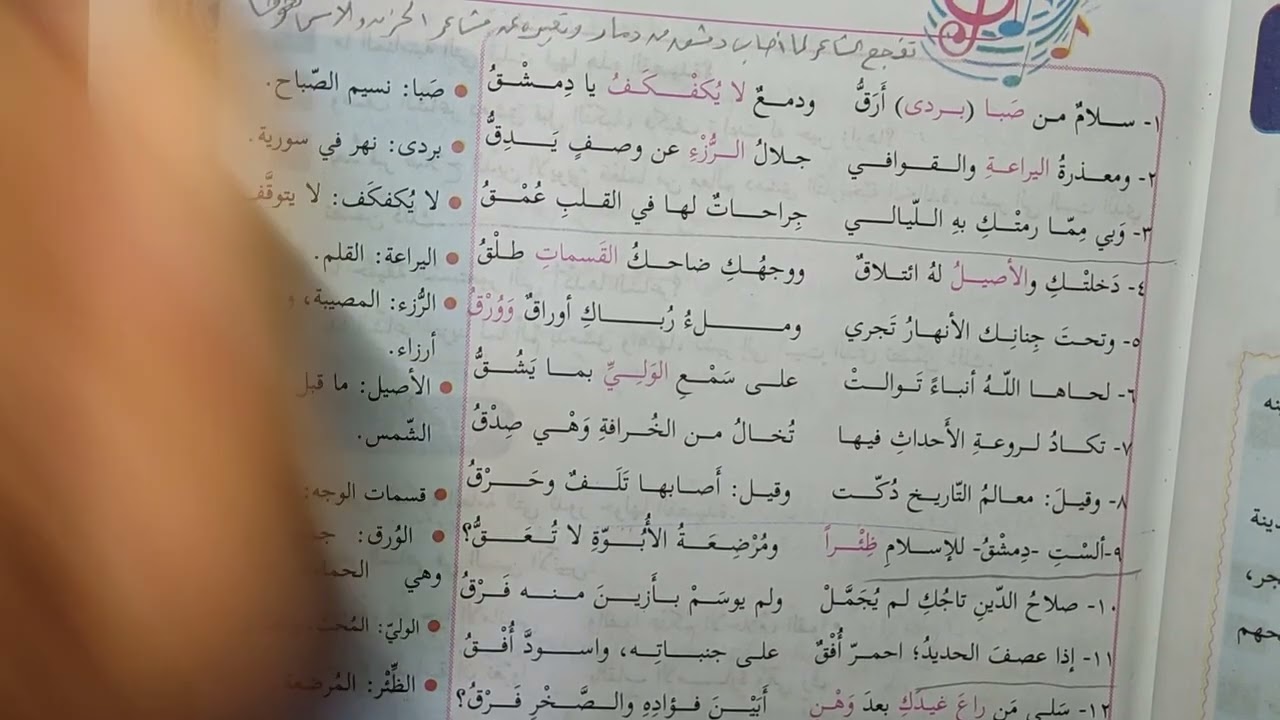 تفجع الشاعر لما أصاب دمشق من دمار وتعبيره عن مشاعر الحزن والأسى
١- سلامٌ من صَبا (بردى) أَرَقُّ ودمعٌ لا يُكَفْكَفُ يا دِمشْقُ
٢- ومعذرةُ اليراعةِ والقوافي جلالُ الرُّزْءِ عن وصفٍ يَدِقُّ
٣- وَبي مِمّا رمتْكِ بهِ اللّيالي جِراحاتٌ لها في القلبِ عُمْقُ
٤- دَخلتْكِ والأصيلُ لهُ ائتلاقٌ ووجهُكِ ضاحكُ القَسماتِ طلْقُ
٥- وتحتَ جِنانِك الأنهارُ تَجري وملءُ رُباكِ أوراقٌ وَوُرْقُ
٦- لحاها اللّهُ أنباءً تَوالتْ على سَمْعِ الوَلِيِّ بما يَشُقُّ
٧- تكادُ لروعةِ الأَحداثِ فيها تُخالُ من الخُرافةِ وَهْي صِدْقُ
٨- وقيلَ: معالمُ التّاريخ دُكّت وقيل: أَصابها تَلَفٌ وحَرْقُ
٩- ألسْتِ -دِمشْقُ- للإسلامِ ظِئْراً ومُرْضِعَةُ الأُبُوّةِ لا تُعَقُّ؟
١٠- صلاحُ الدّينِ تاجُكِ لم يُجَمَّلْ ولم يوسَمْ بأَزينَ منه فَرْقُ
١١- إذا عصفَ الحديدُ؛ احمرّ أُفْقٌ على جنباتِه، واسودَّ أُفْقُ
١٢- سَلي مَن راعَ غيدَكِ بعدَ وَهْنٍ أَبَيْنَ فؤادِهِ والصَّخْرِ فَرْقُ؟
صَبا: نسيم الصّباح.
بردى: نهر في سورية.
لا يُكفكَف: لا يتوقَّف
اليراعة: القلم.
الرُّزء: المصيبة،
أرزاء.
الأصيل: ما قبل
الشّمس.
قسمات الوجه:
الوُرق:
وهي
الوليّ:
الظِّئْر:
دينة